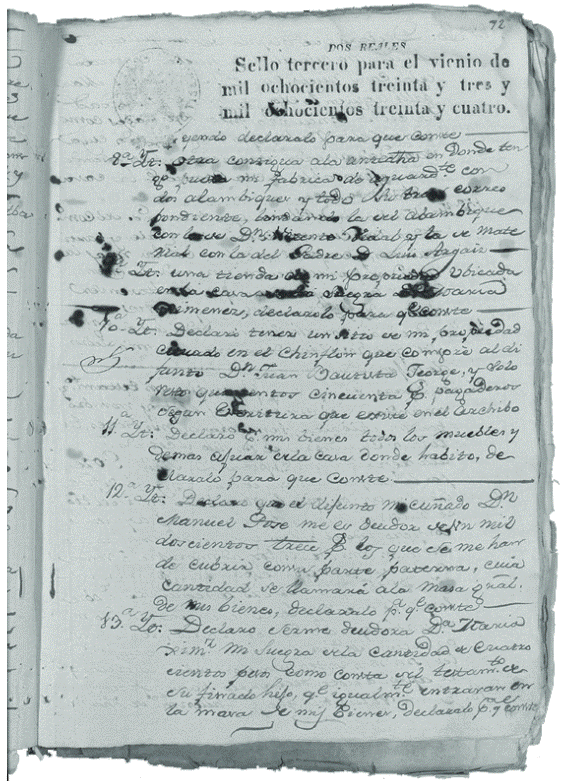 72
DOS REALES
Sello tercero para el vienio de
mil ochocientos treinta y tres y
mil ochocientos treinta y cuatro.
yendo declaralo para que conste
8.ª Yt. otra contigua ala en donde ten
go mi fabrica de aguard.te con
dos alambiques y todo
pondiente, la del alambique
con la de D.n Vicente Vidal y la de Mate
rial con la del Padre D. Luis
Yt. una tienda de mi propiedad ubicada
en la casa suegra Maria
Gimenez, declaralo para q.e conste
10.ª Yt. Declaro tener un sitio de mi propiedad
cituado en el Chinflon que compre al di
funto D.n Juan Bautista George, y solo
resto quinientos cincuenta p.s pagaderos
segun Escritura que en el Archibo
11.ª Yt. Declaro p.r mis bienes todos los muebles y
demas en la casa donde habito, de
claralo para que conste.
12.ª Yt. Declaro que el difunto mi cuñado D.n
Manuel Jose me es deudor de un mil
doscientos trece p.s los que se me han
de cubrir como parte paterna, cuia
cantidad se llamará ala Masa gral.
de mis bienes, declaralo p.a q.e conste
13.ª Yt. Declaro serme deudora D.a Maria
Xim.z mi suegra de la cantidad de cuatro
cientos pesos como consta del testam.to de
su finado hijo, q.e igualm.te entraran en
la masa de mis bienes, declaralo p.a q.e conste